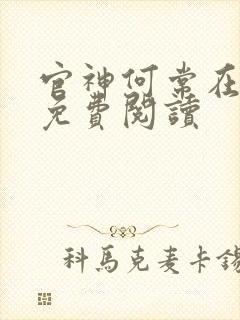 官神何常在
免費閱讀
科馬克麦卡錫